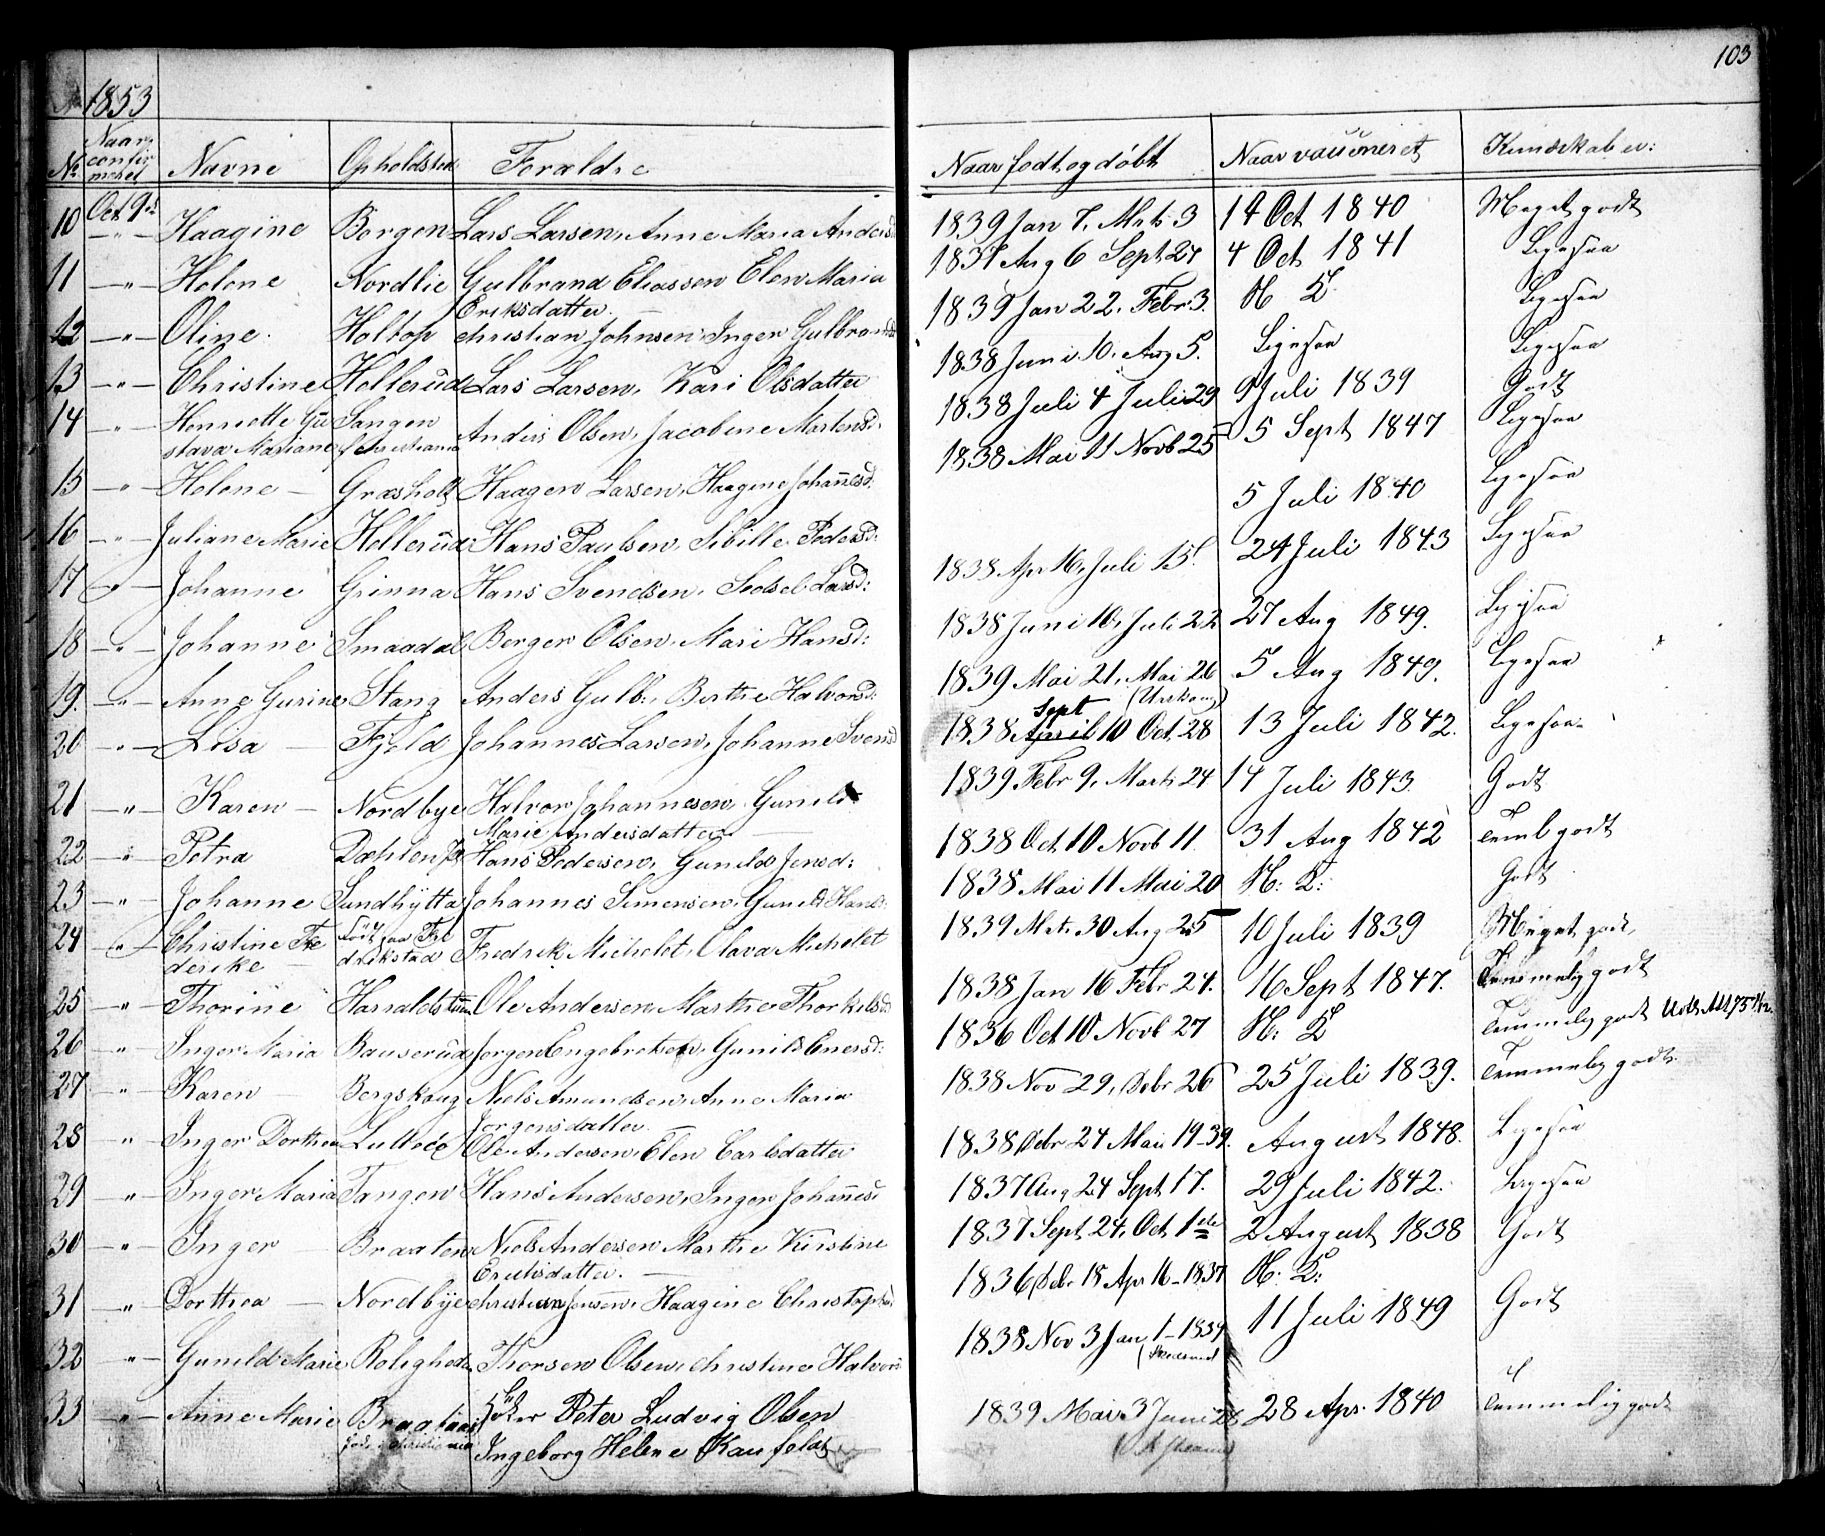 103
1853
No Naar confirmeret Navne Opholdsted Foræld.e
Naar født og døbt Naar vaccineret Kundskaber:
Oct 9de
10 Haagine Borgen Lars Larsen, Anne Maria Andersd
11 — " — Helene Nordlie Gulbrand Eliassen Elen Maria
Eriksdatter.
12 — " — Oline. Holtop Christian Johnsen, Inger Gulbrandsd
13 — " — Christine Hellerud Lars Larsen, Kari Olsdatter
14 — " — Henriette Gu Sangen
stava Mariane f Christiania Anders Olsen, Jacobine Martensd:
15 — " — Helene — Græsholt Haagen Larsen, Haagine Johañesd:
16 — " — Juliane Marie Hellerud Hans Paulsen, Sibille Pedersd:
17 — " — Johanne Grinna Hans Svendsen, Sedsel Larsd:
18 — " — Johanne Smaadal Berger Olsen, Mari Hansd:
19. — " — Anne Gurine Stang Anders Gulb:, Berthe Halvorsd:
20 — " — Lisa — Fjeld Johannes Larsen, Johanne Svensd
21 — " — Karen — Nordbye Halvor Johannesen, Gunild
Marie Andersdatter —
22 — " — Petra Dæhlen Hans Pedersen, Gunild Jensd:
23 — " — Johanne Sundhytta Johannes Simensen, Gunild Hansd:
24 — " — Christine Fre Født paa Fre
derike — drikstad Fredrik Michelet, Olava Michelet
25 " — Thorine Harraldstuen Ole Andersen Marthe Thorkilsd
26 " — Inger Maria Bauserud Jørgen Engebretsen, Gunild Enersd:
27 " — Karen — Bergskaug Niels Amundsen, Anne Maria
Jorgensdatter.
28 " — Inger Dorthea Ole Andersen, Elen Carlsdatter
29 " — Inger Maria Tangen Hans Andersen, Inger Johañesd
30 — " — Inger — Braaten Niels Andersen Marthe Kirstine
Erichsdatter. —
31 " — Dorthea — Nordbye Christian Jensen, Haagine Christophersd
32 " — Gunild Marie Roligheden Thorsen Olsen, Christine Halvorsd
33 — " — Anne Marie Peter Ludvig Olsen
Ingeborg Helene Kaufeldt
1839 Jan 7, Mrts 3 14 Oct 1840 Meget godt
1837 Aug 6 Sept 24 4 Oct 1841 Ligesaa
1839 Jan 22, Febr 3. H K Ligesaa
1838 Juni 10, Aug 5. Ligesaa Ligesaa
1838 Juli 4 Juli 29 9 Juli 1839 Godt
1838 Mai 11 Novb 25 5 Sept 1847 Ligesaa
5 Juli 1840 Ligesaa
1838 Apr 16, Juli 15. 24 Juli 1843 Ligesaa
1838 Juni 16, Juli 22 27 Aug 1849. Ligesaa
1839 Mai 21, Mai 26 5 Aug 1849. Ligesaa
Sept (Urskoug)
1838 April 10 Oct. 28 13 Juli 1842. Ligesaa
1839 Febr 9, Marts 24 14 Juli 1843. Godt
1838 Oct 10 Novb 11. 31 Aug 1842 Teml godt
1838 Mai 11 Mai 20 H: K: Godt
1839 Mts 30 Aug 25 10 Juli 1839 Meget godt,
1838 Jan 16 Febr 24. 16 Sept 1847. Temmelig godt
1836 Oct 10 Novb 27 H: K Temmelig godt
1838 Nov 29, Debr 26 25 Juli 1839. Temmelig godt.
1838 Debr 24 Mai 19–39. August 1848. Ligesaa
1837 Aug 24 Sept 17. 29 Juli 1842. Ligesaa
1837 Sept 24, Oct 1ste 2 August 1838 Godt
1836 Debr 15 Apr 16–1837 H: K:
1838 Nov 3 Jan 1–1839 11 Juli 1849 Godt
1839 Mai 3 Juni 28 28 Apr. 1840 Temmelig godt